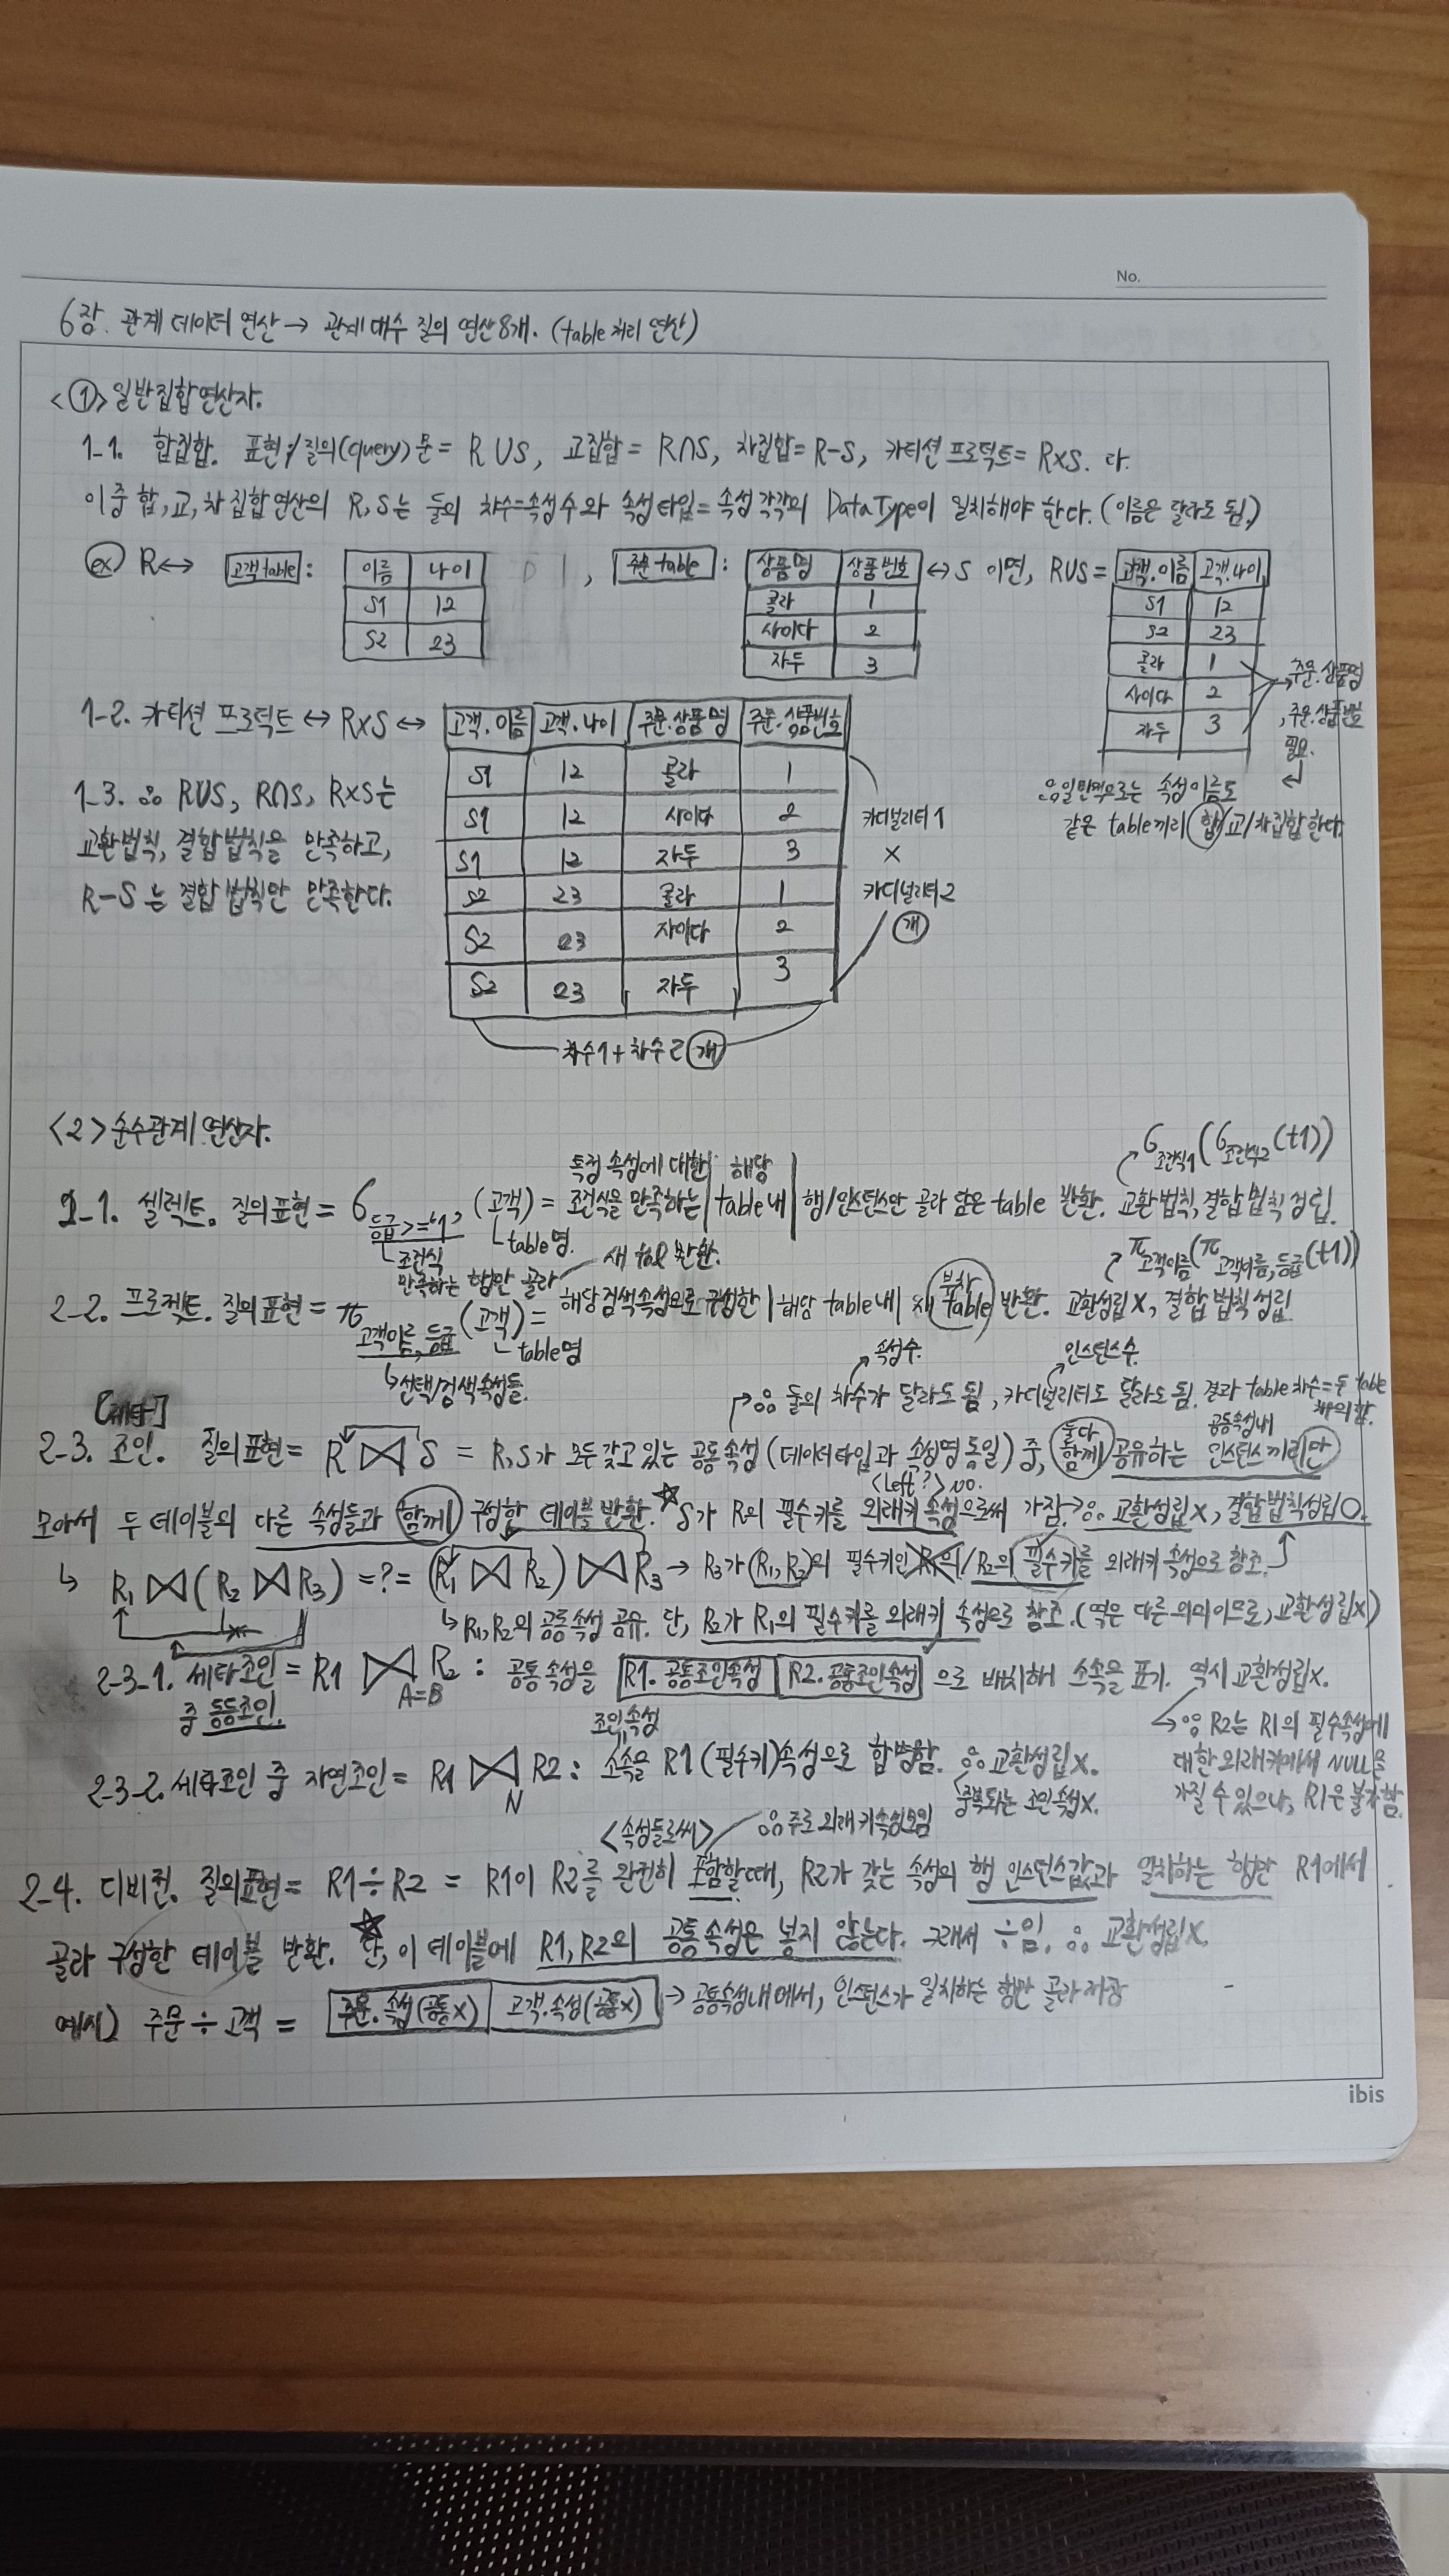 No.
6장. 관계 데이터 연산 → 관계 대수 질의 연산 8개. (table 처리 연산)
<①> 일반집합연산자.
1-1. 합집합. 표현/질의(query)문 = R∪S, 교집합 = R∩S, 차집합 = R-S, 카티션 프로덕트 = R×S. 다.
이중 합,교,차집합연산의 R,S는 둘의 차수=속성수와 속성타입=속성각각의 DataType이 일치해야 한다. (이름은 달라도 됨.)
ex) R↔ 고객table : , 주문table : ↔ S 이면, R∪S =
이름 나이
S1 12
S2 23
상품명 상품번호
콜라 1
사이다 2
자두 3
고객.이름 고객.나이
S1 12
S2 23
콜라 1
사이다 2
자두 3
→ 주문.상품명
, 주문.상품번호
필요.
∴일반적으로는 속성이름도
같은 table끼리 합/교/차집합한다
1-2. 카티션 프로덕트 ↔ R×S ↔
고객.이름 고객.나이 주문.상품명 주문.상품번호
S1 12 콜라 1
S1 12 사이다 2
S1 12 자두 3
S2 23 콜라 1
S2 23 사이다 2
S2 23 자두 3
카디널리티1
×
카디널리티2
개
차수1 + 차수2 개
1-3. ∴ R∪S, R∩S, R×S는
교환법칙, 결합법칙을 만족하고,
R-S는 결합법칙만 만족한다.
<2> 순수관계 연산자.
6조건식1(6조건식2(t1))
특정 속성에 대한 | 해당
2-1. 셀렉트. 질의표현 = 6등급>='1' (고객) = 조건식을 만족하는 | table내 | 행/인스턴스만 골라 담은 table 반환. 교환법칙, 결합법칙 성립.
조건식
table명.
만족하는 행만 골라
새 반환.
π고객이름(π고객이름, 등급(t1))
2-2. 프로젝트. 질의표현 = π고객이름, 등급 (고객) = 해당검색속성으로 구성한 | 해당 table내 | table 반환. 교환성립X, 결합법칙성립
table명
선택/검색속성들.
속성수.
인스턴스수.
∴ 둘의 차수가 달라도 됨, 카디널리티도 달라도 됨. 결과 table차수 = 두 table
차수의합.
공통속성내
2-3. 조인. 질의표현 = R ⋈ S = R,S가 모두 갖고 있는 공통속성 (데이터타입과 속성명 동일) 중, 둘다 함께 공유하는 인스턴스끼리만
<Left?> no.
모아서 두 테이블의 다른 속성들과 함께 구성한 테이블 반환. ☆S가 R의 필수키를 외래키 속성으로써 가짐→∴ 교환성립X, 결합법칙성립O.
↳ R₁ ⋈ (R₂ ⋈ R₃) =?= (R₁ ⋈ R₂) ⋈ R₃ → R₃가 (R₁,R₂)의 필수키인 R₁의/R₂의 필수키를 외래키 속성으로 참조.
↳ R₁,R₂의 공통속성 공유. 단, R₂가 R₁의 필수키를 외래키 속성으로 참조. (역은 다른의미이므로, 교환성립X)
2-3-1. 세타조인 = R1 ⋈A=B R2 : 공통 속성을 R1.공통조인속성 R2.공통조인속성 으로 배치해 소속을 표기. 역시 교환성립X.
중 동등조인.
↳ ∴ R2는 R1의 필수속성에
대한 외래키에서 NULL을
가질 수 있으나, R1은 불가함.
조인속성
2-3-2. 세타조인 중 자연조인 = R1 ⋈N R2 : 소속을 R1(필수키)속성으로 합병함. ∴ 교환성립X.
중복되는 조인속성X.
<속성들로써> ∴주로 외래키속성모임
2-4. 디비전. 질의표현 = R1÷R2 = R1이 R2를 완전히 포함할때, R2가 갖는 속성의 행 인스턴스값과 일치하는 행만 R1에서
골라 구성한 테이블 반환. ☆단, 이 테이블에 R1,R2의 공통속성은 넣지 않는다. 그래서 ÷임. ∴ 교환성립X.
예시) 주문÷고객 = 주문.속성(공통X) 고객.속성(공통X) → 공통속성내에서, 인스턴스가 일치하는 행만 골라 저장
ibis